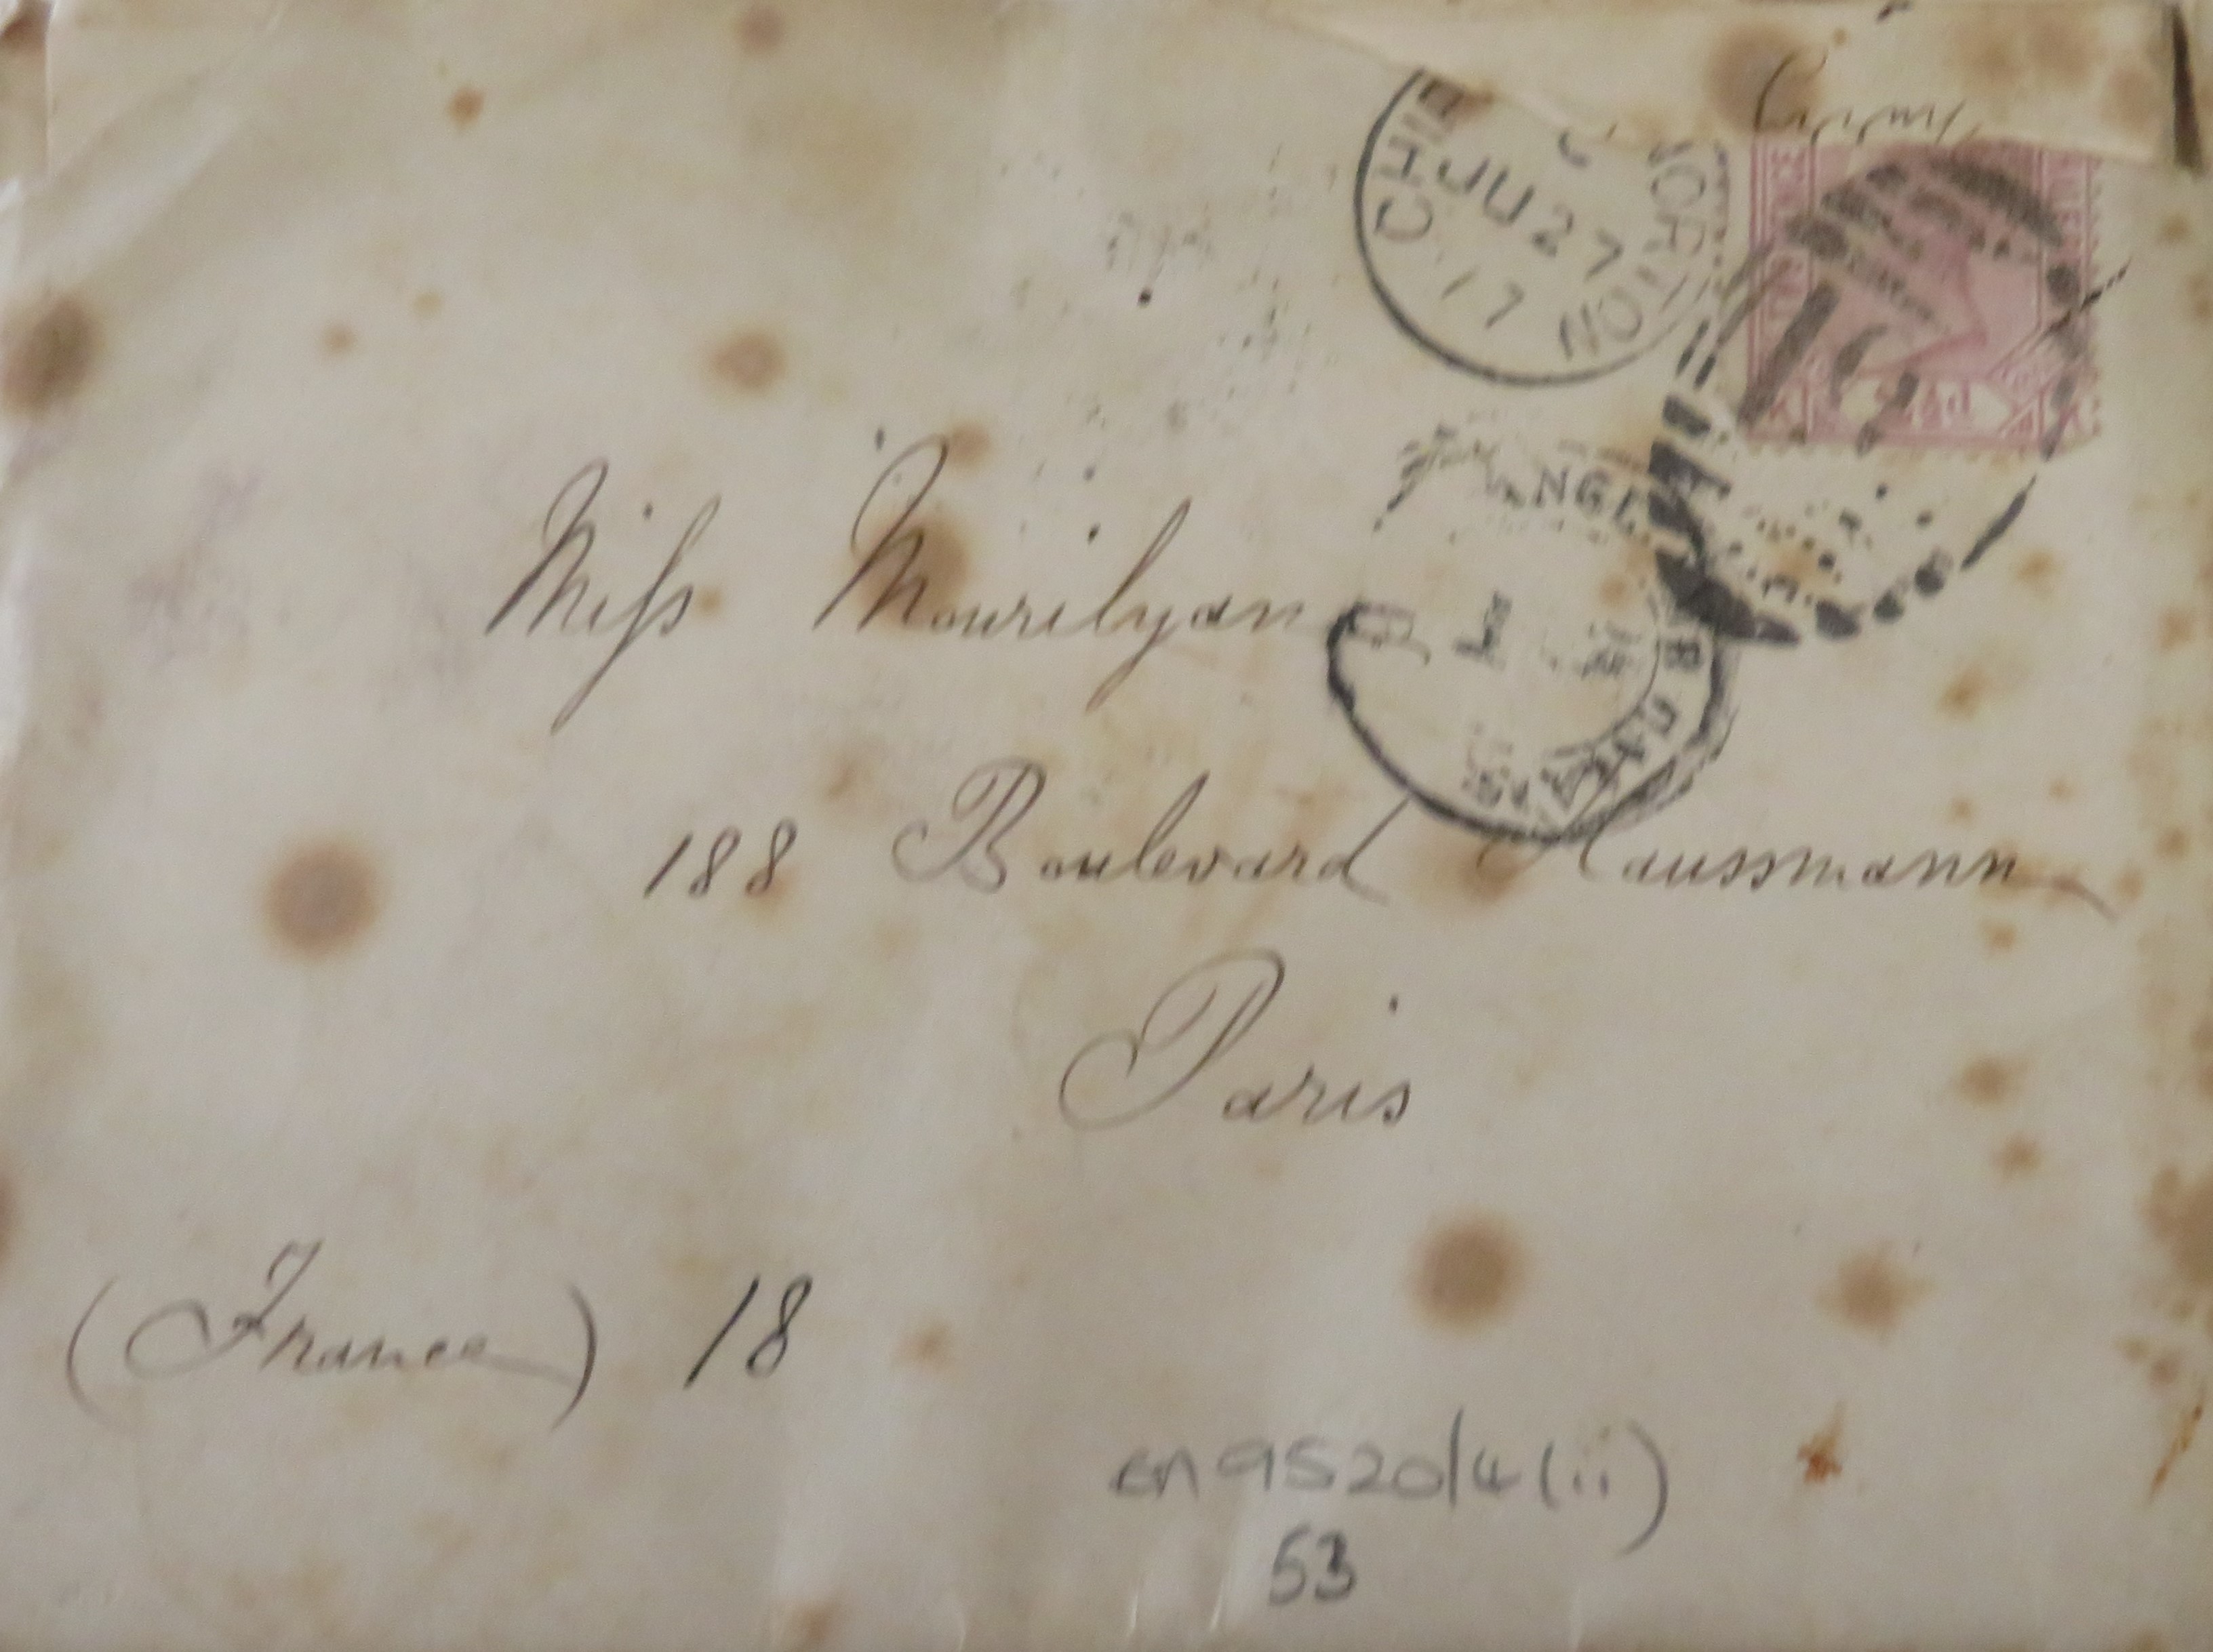 CHI
NORTON
JU 27
17
NGL
Miss Mourilyan
188 Boulevard Haussmann
Paris
(France) 18
EN9520/4(ii)
53